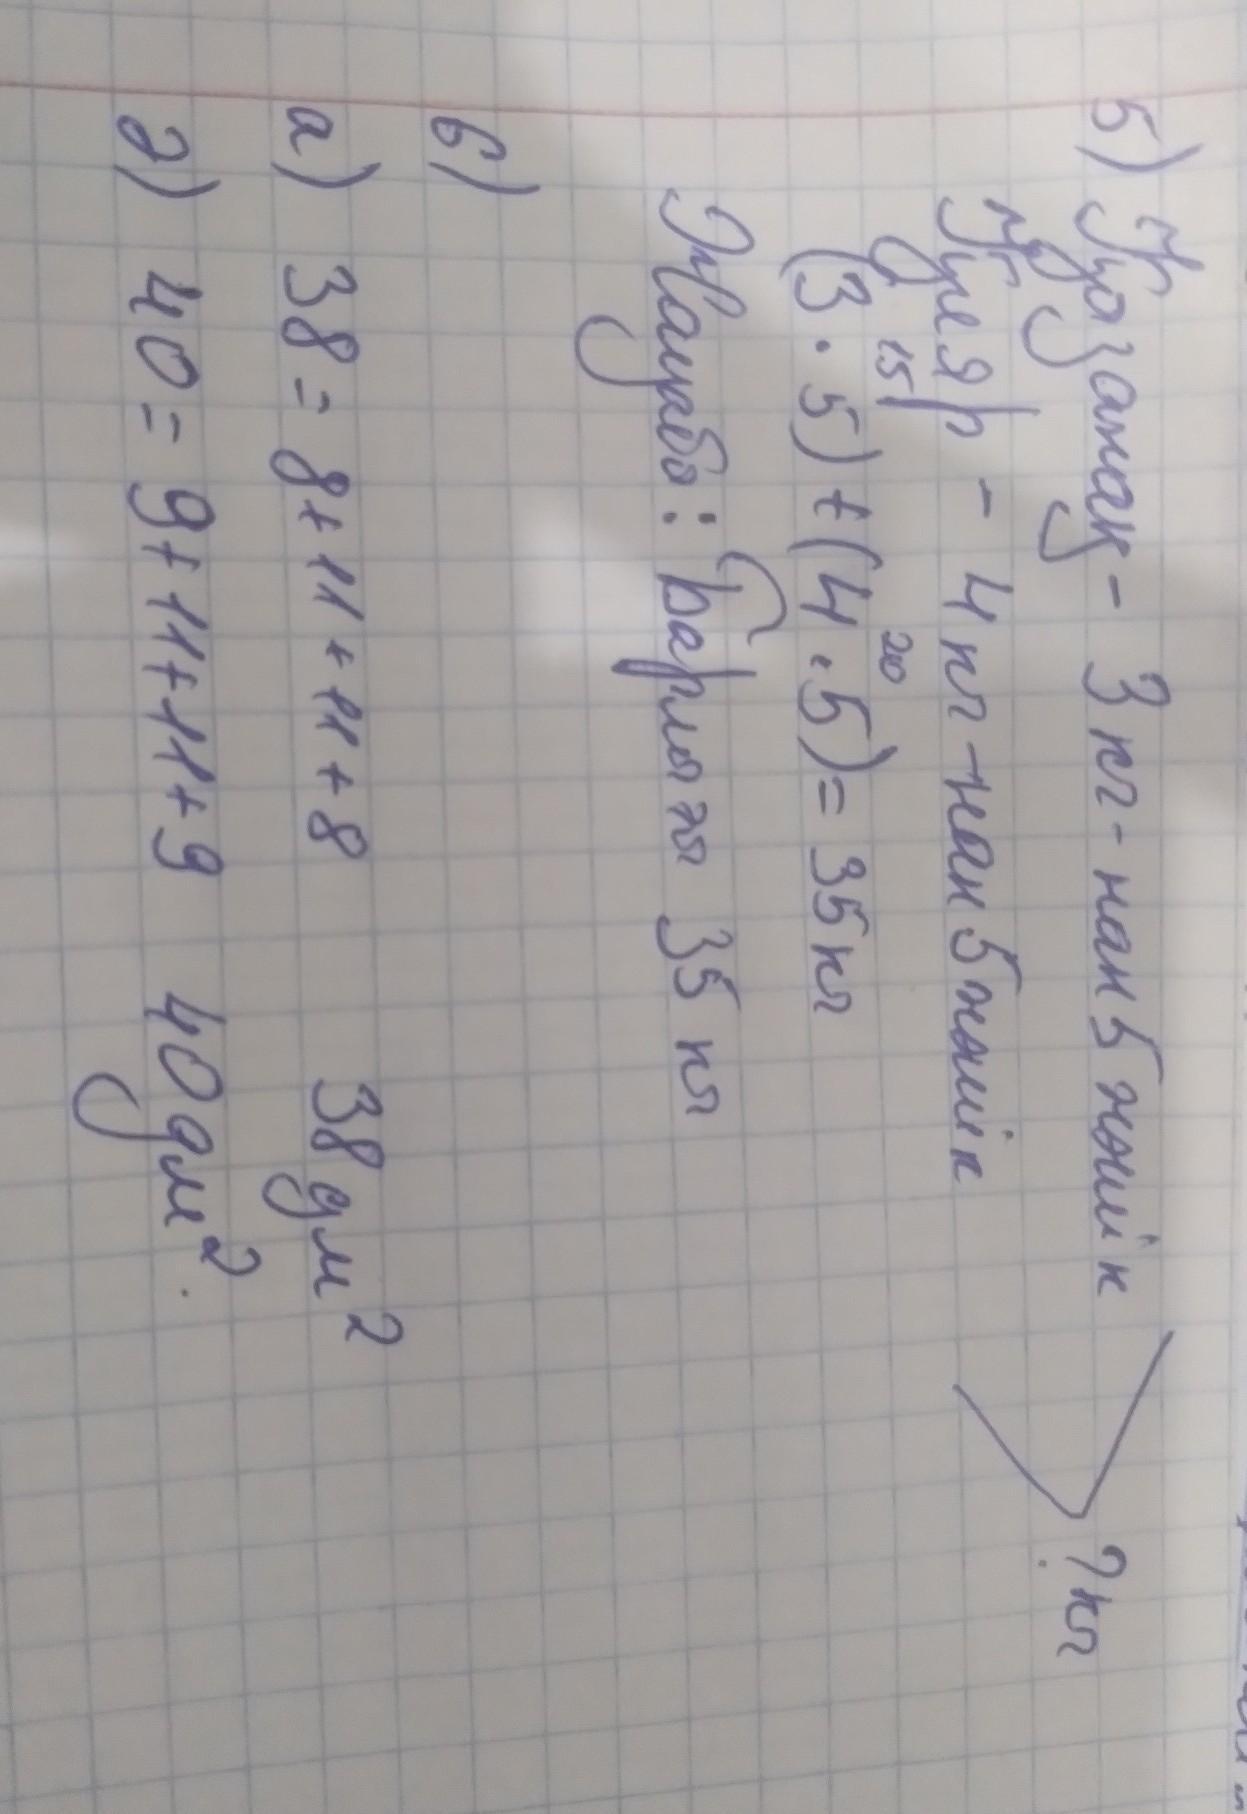 5) Қызанақ - 3 кг-нан 5 жәшік
Қияр - 4 кг-нан 5 жәшік
? кг
15 20
(3 · 5) + (4 · 5) = 35 кг
Жауабы: Барлығы 35 кг
6)
а) 38 = 8 + 11 + 11 + 8 38 дм²
2) 40 = 9 + 11 + 11 + 9 40 дм²